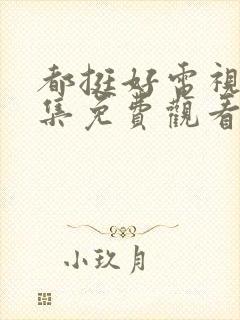 都挺好電視
集免費觀看
小玖月